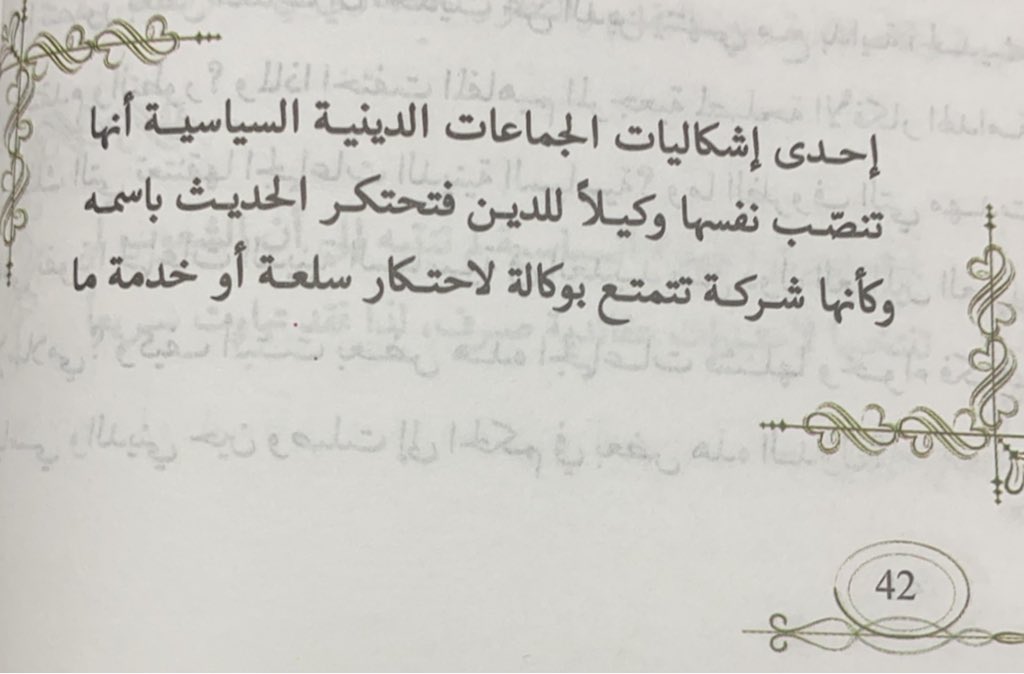 إحدى إشكاليات الجماعات الدينية السياسية أنها
تنصّب نفسها وكيلاً للدين فتحتكر الحديث باسمه
وكأنها شركة تتمتع بوكالة لاحتكار سلعة أو خدمة ما
42